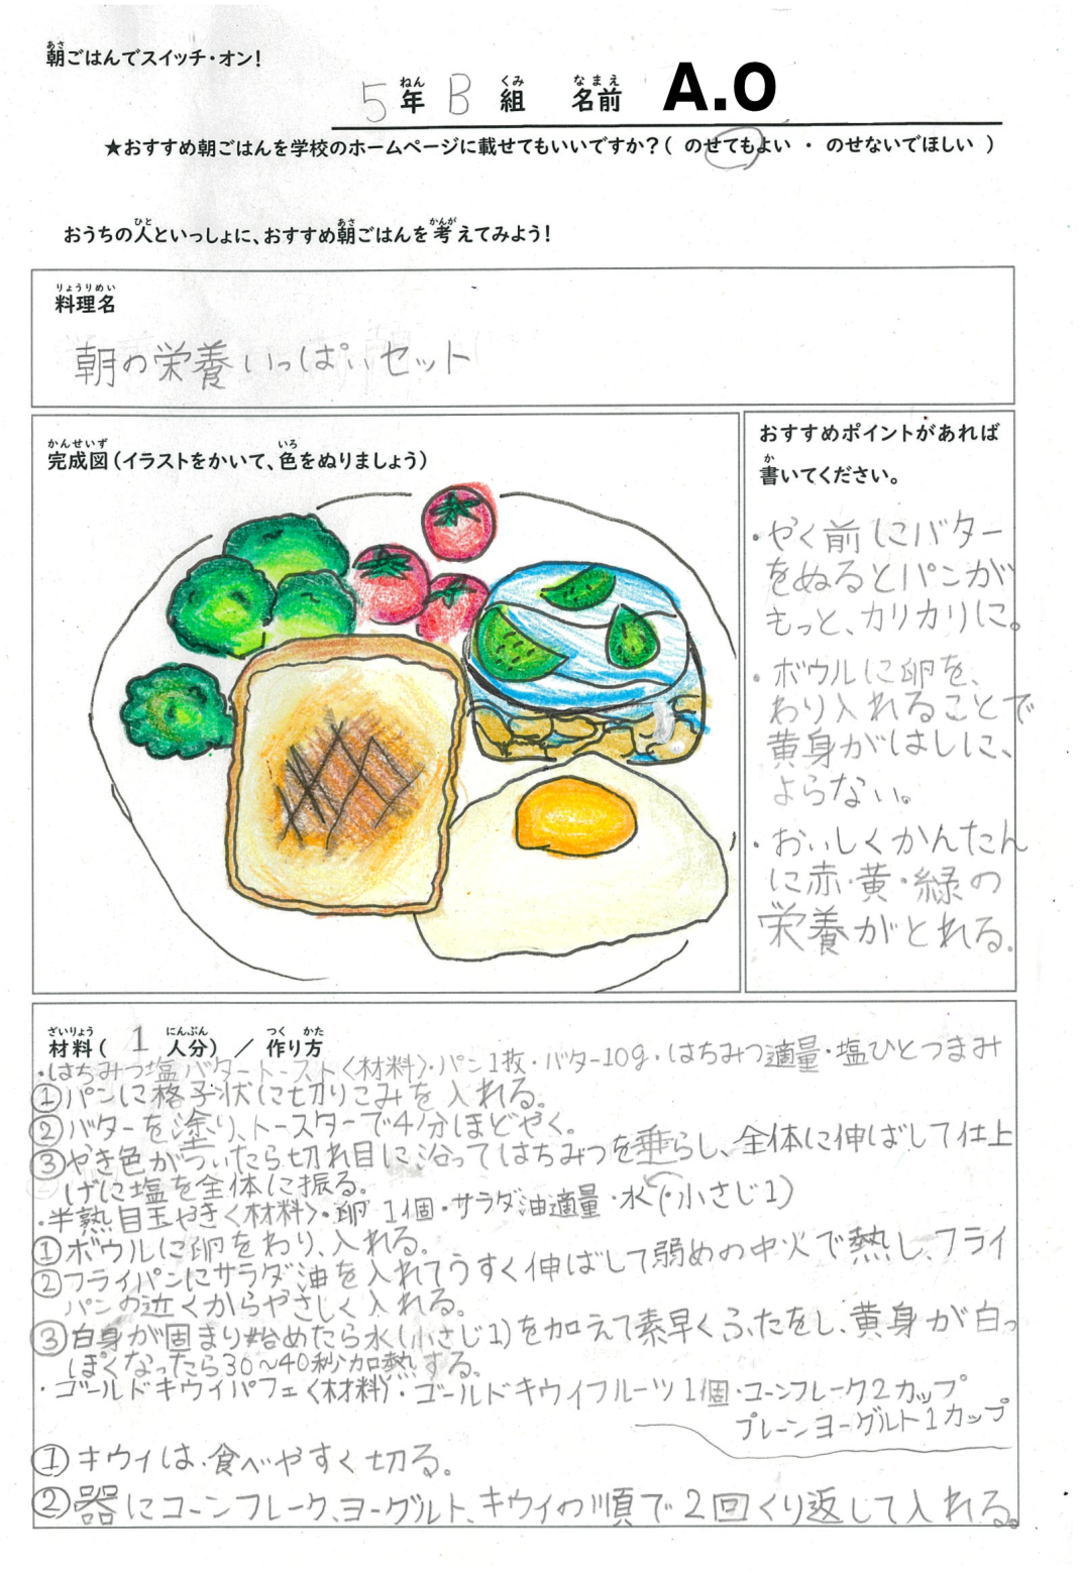 朝ごはんでスイッチ・オン!
5年 B 組 名前 A.O
★おすすめ朝ごはんを学校のホームページに載せてもいいですか?( のせてもよい ・ のせないでほしい )
おうちの人といっしょに、おすすめ朝ごはんを考えてみよう!
料理名
朝の栄養いっぱいセット
完成図(イラストをかいて、色をぬりましょう)
おすすめポイントがあれば
書いてください。
・やく前にバター
をぬるとパンが
もっと、カリカリに。
・ボウルに卵を、
わり入れることで
黄身がはしに、
よらない。
・おいしくかんたん
に赤・黄・緑の
栄養がとれる。
材料( 1 人分) / 作り方
・はちみつ塩バタートースト〈材料〉・パン1枚・バター10g・はちみつ適量・塩ひとつまみ
①パンに格子状に切りこみを入れる。
②バターを塗り、トースターで4分ほどやく。
③やき色がついたら切れ目に沿ってはちみつを垂らし、全体に伸ばして仕上
げに塩を全体に振る。
・半熟目玉やき〈材料〉・卵1個・サラダ油適量・水(・小さじ1)
①ボウルに卵をわり、入れる。
②フライパンにサラダ油を入れてうすく伸ばして弱めの中火で熱し、フライ
パンの近くからやさしく入れる。
③白身が固まり始めたら水(小さじ1)を加えて素早くふたをし、黄身が白っ
ぽくなったら30〜40秒加熱する。
・ゴールドキウイパフェ〈材料〉・ゴールドキウイフルーツ1個・コーンフレーク2カップ
プレーンヨーグルト1カップ
①キウイは、食べやすく切る。
②器にコーンフレーク、ヨーグルト、キウイの順で2回くり返して入れる。